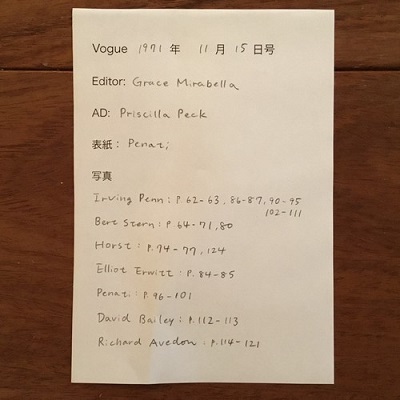 Vogue 1971 年 11 月 15 日号
Editor: Grace Mirabella
AD: Priscilla Peck
表紙: Penati
写真
Irving Penn : P 62-63, 86-87, 90-95
102-111
Bert Stern : P 64-71, 80
Horst : P.74-77, 124
Elliot Erwitt : P. 84-85
Penati : P. 96-101
David Bailey : P.112-113
Richard Avedon : P.114-121